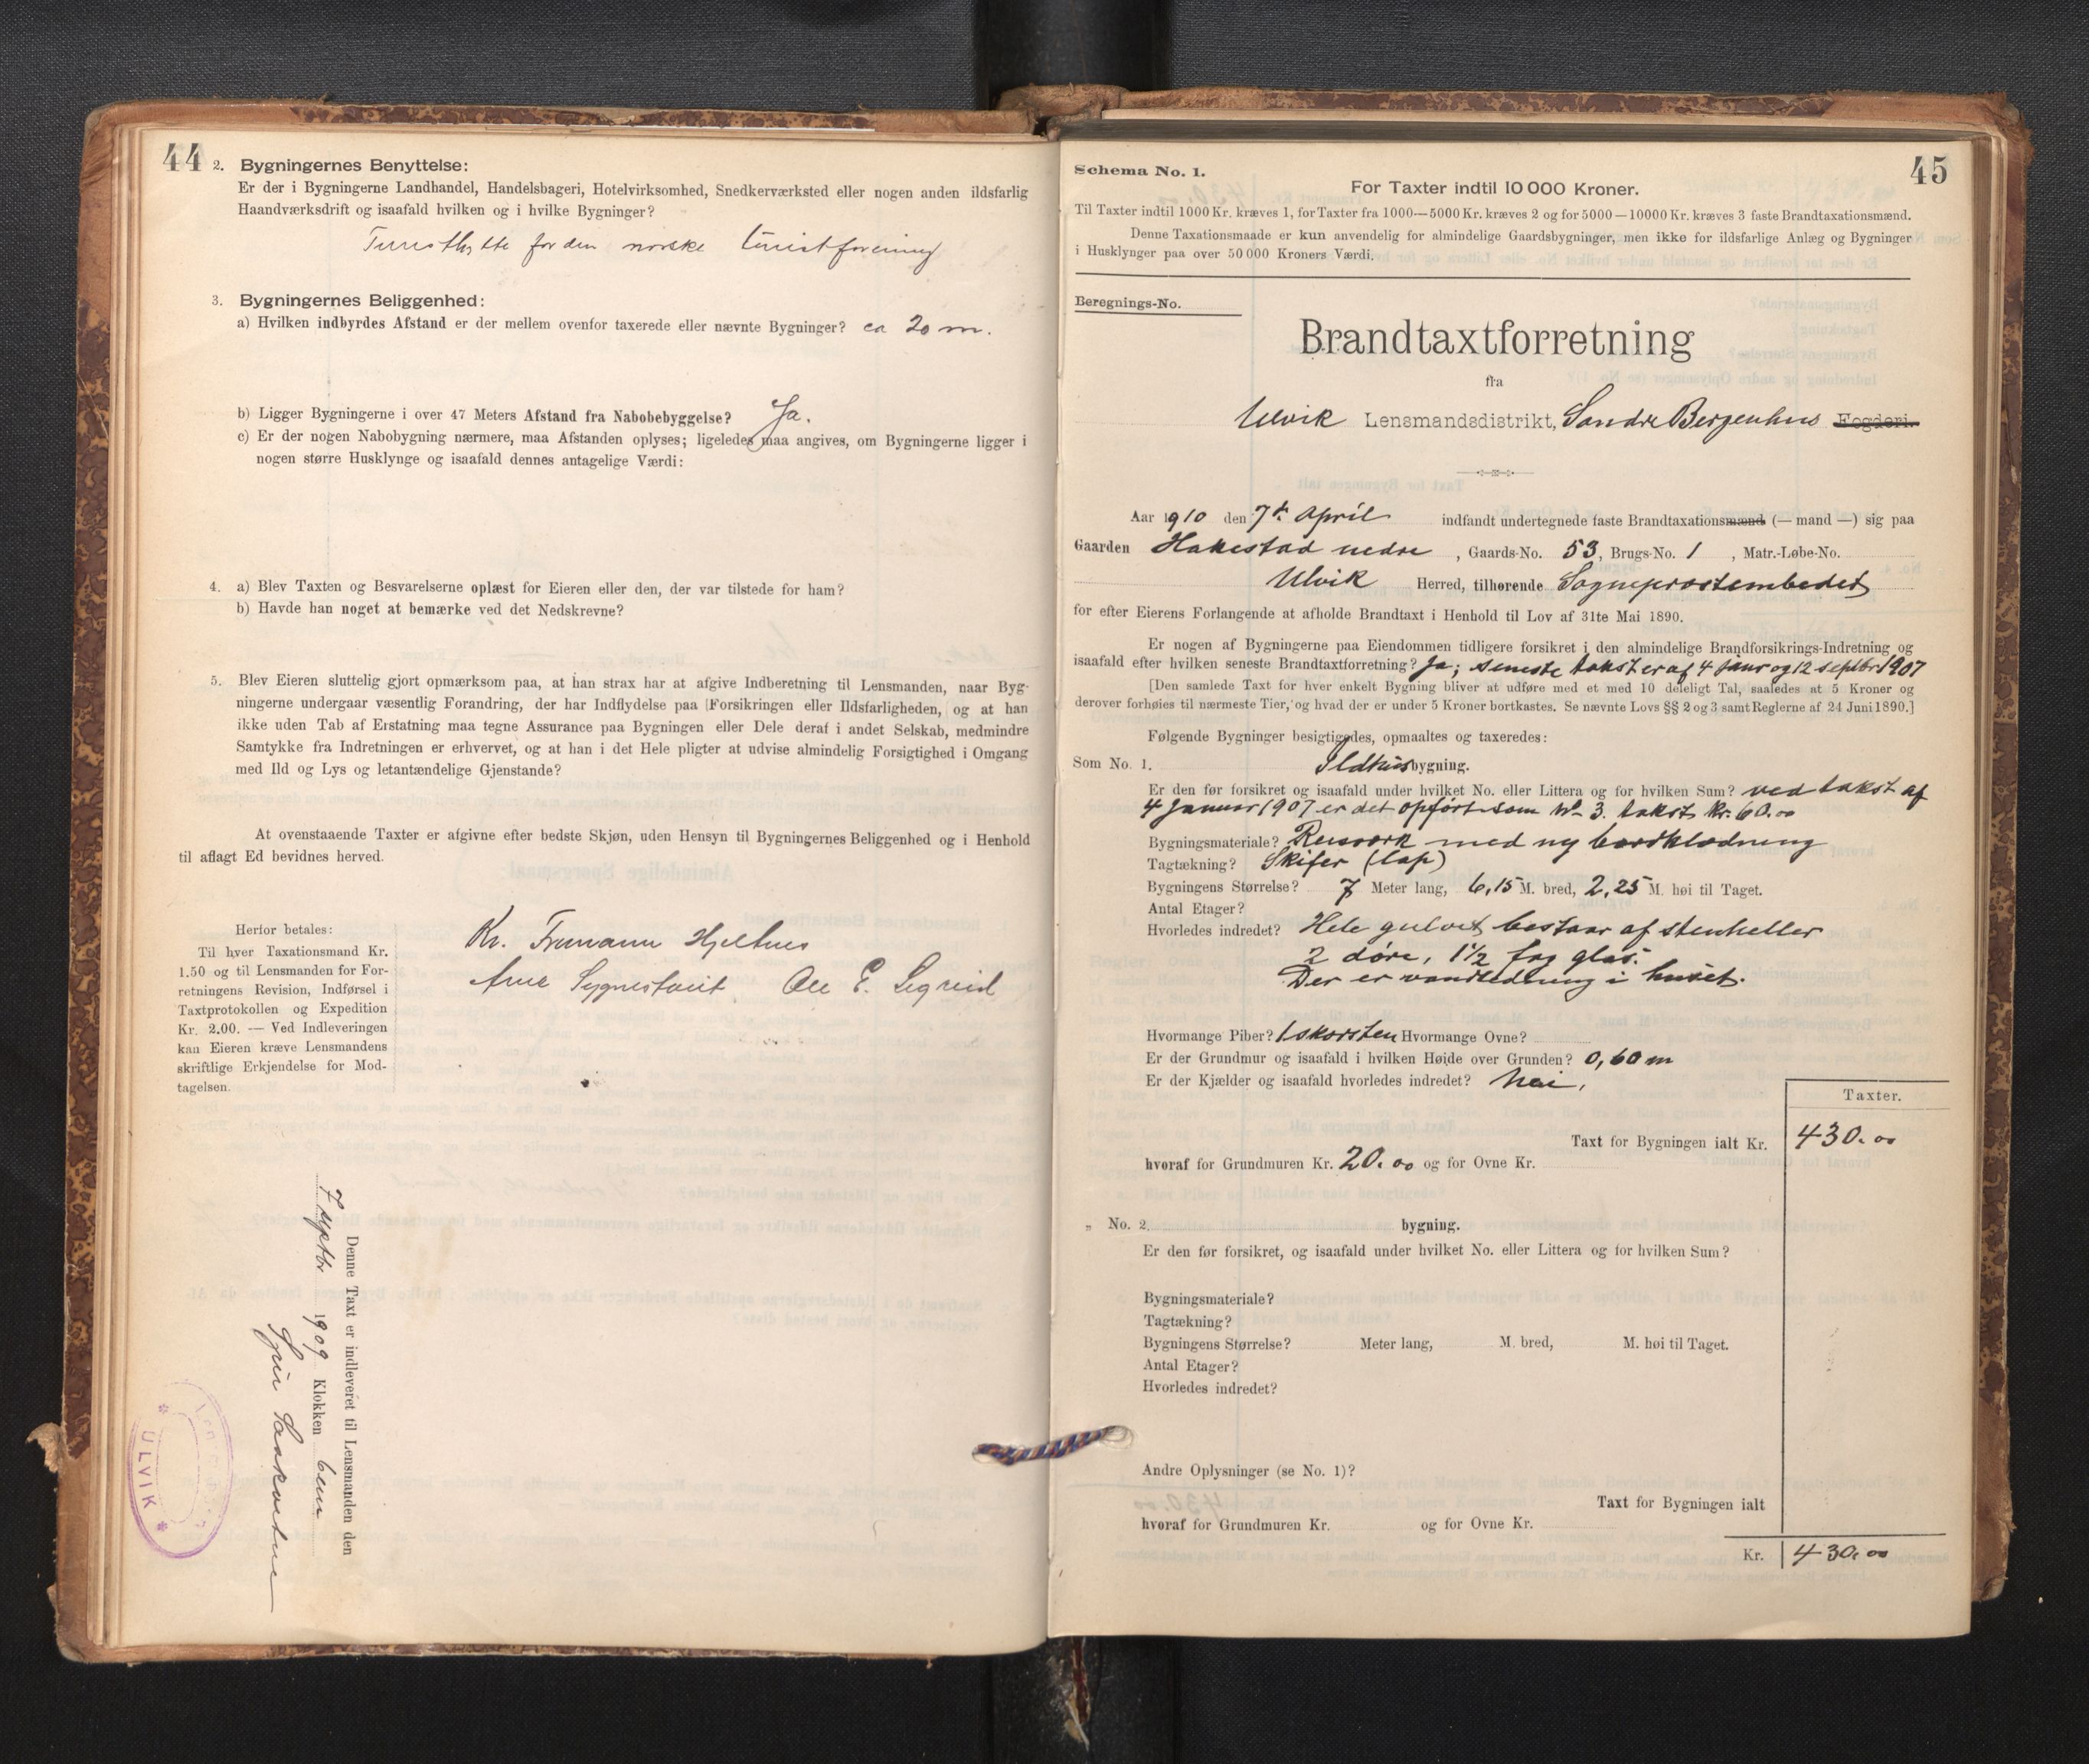 44
2. Bygningernes Benyttelse:
Er der i Bygningerne Landhandel, Handelsbageri, Hotelvirksomhed, Snedkerværksted eller nogen anden ildsfarlig
Haandværksdrift og isaafald hvilken og i hvilke Bygninger?
Turisthytte for den norske turistforening
3. Bygningernes Beliggenhed:
a) Hvilken indbyrdes Afstand er der mellem ovenfor taxerede eller nævnte Bygninger? ca 20 m.
b) Ligger Bygningerne i over 47 Meters Afstand fra Nabobebyggelse? Ja.
c) Er der nogen Nabobygning nærmere, maa Afstanden oplyses; ligeledes maa angives, om Bygningerne ligger i
nogen større Husklynge og isaafald dennes antagelige Værdi:
4. a) Blev Taxten og Besvarelserne oplæst for Eieren eller den, der var tilstede for ham?
b) Havde han noget at bemærke ved det Nedskrevne?
5. Blev Eieren sluttelig gjort opmærksom paa, at han strax har at afgive Indberetning til Lensmanden, naar Byg-
ningerne undergaar væsentlig Forandring, der har Indflydelse paa Forsikringen eller Ildsfarligheden, og at han
ikke uden Tab af Erstatning maa tegne Assurance paa Bygningen eller Dele deraf i andet Selskab, medmindre
Samtykke fra Indretningen er erhvervet, og at han i det Hele pligter at udvise almindelig Forsigtighed i Omgang
med Ild og Lys og letantændelige Gjenstande?
At ovenstaaende Taxter er afgivne efter bedste Skjøn, uden Hensyn til Bygningernes Beliggenhed og i Henhold
til aflagt Ed bevidnes herved.
Herfor betales:
Til hver Taxationsmand Kr.
1.50 og til Lensmanden for For-
retningens Revision, Indførsel i
Taxtprotokollen og Expedition
Kr. 2.00. — Ved Indleveringen
kan Eieren kræve Lensmandens
skriftlige Erkjendelse for Mod-
tagelsen.
Kr. Trumann Hjeltnes
Arne Lygnestveit Ole E. Legreid
Denne Taxt er indleveret til Lensmanden den
7 septbr 1909 Klokken
ULVIK
45
Schema No. 1.
For Taxter indtil 10 000 Kroner.
Til Taxter indtil 1000 Kr. kræves 1, for Taxter fra 1000—5000 Kr. kræves 2 og for 5000—10000 Kr. kræves 3 faste Brandtaxationsmænd.
Denne Taxationsmaade er kun anvendelig for almindelige Gaardsbygninger, men ikke for ildsfarlige Anlæg og Bygninger
i Husklynger paa over 50 000 Kroners Værdi.
Beregnings-No.
Brandtaxtforretning
fra
Ulvik Lensmandsdistrikt, Søndre Bergenhus Fogderi.
Aar 1910 den 7de April indfandt undertegnede faste Brandtaxationsmænd (— mand —) sig paa
Gaarden Hakestad nedre, Gaards-No. 53, Brugs-No. 1, Matr.-Løbe-No.
Ulvik Herred, tilhørende Sogneprestembedet
for efter Eierens Forlangende at afholde Brandtaxt i Henhold til Lov af 31te Mai 1890.
Er nogen af Bygningerne paa Eiendommen tidligere forsikret i den almindelige Brandforsikrings-Indretning og
isaafald efter hvilken seneste Brandtaxtforretning? Ja; seneste takster af 4 Janr og 12 septbr 1907
[Den samlede Taxt for hver enkelt Bygning bliver at udføre med et med 10 deleligt Tal, saaledes at 5 Kroner og
derover forhøies til nærmeste Tier, og hvad der er under 5 Kroner bortkastes. Se nævnte Lovs §§ 2 og 3 samt Reglerne af 24 Juni 1890.]
Følgende Bygninger besigtigedes, opmaaltes og taxeredes:
Som No. 1. Ildhusbygning.
Er den før forsikret og isaafald under hvilket No. eller Littera og for hvilken Sum? ved takst af
4 Januar 1907 er det opført som No 3. takst kr. 60.00
Bygningsmateriale? Reisverk med ny bordklædning
Tagtækning? Skifer (lap)
Bygningens Størrelse? 7 Meter lang, 6,15 M. bred, 2,25 M. høi til Taget.
Antal Etager?
Hvorledes indredet? Hele gulvet bestaar af stenheller
2 døre, 1½ fag glas.
Der er vandledning i huset.
Hvormange Piber? 1 skorsten Hvormange Ovne?
Er der Grundmur og isaafald i hvilken Høide over Grunden? 0,60 m
Er der Kjælder og isaafald hvorledes indredet? Nei,
Taxter.
Taxt for Bygningen ialt Kr. 430.00
hvoraf for Grundmuren Kr. 20.00 og for Ovne Kr.
„ No. 2. bygning.
Er den før forsikret, og isaafald under hvilket No. eller Littera og for hvilken Sum?
Bygningsmateriale?
Tagtækning?
Bygningens Størrelse? Meter lang, M. bred, M. høi til Taget.
Antal Etager?
Hvorledes indredet?
Andre Oplysninger (se No. 1)?
Taxt for Bygningen ialt
hvoraf for Grundmuren Kr. og for Ovne Kr.
Kr. 430.00